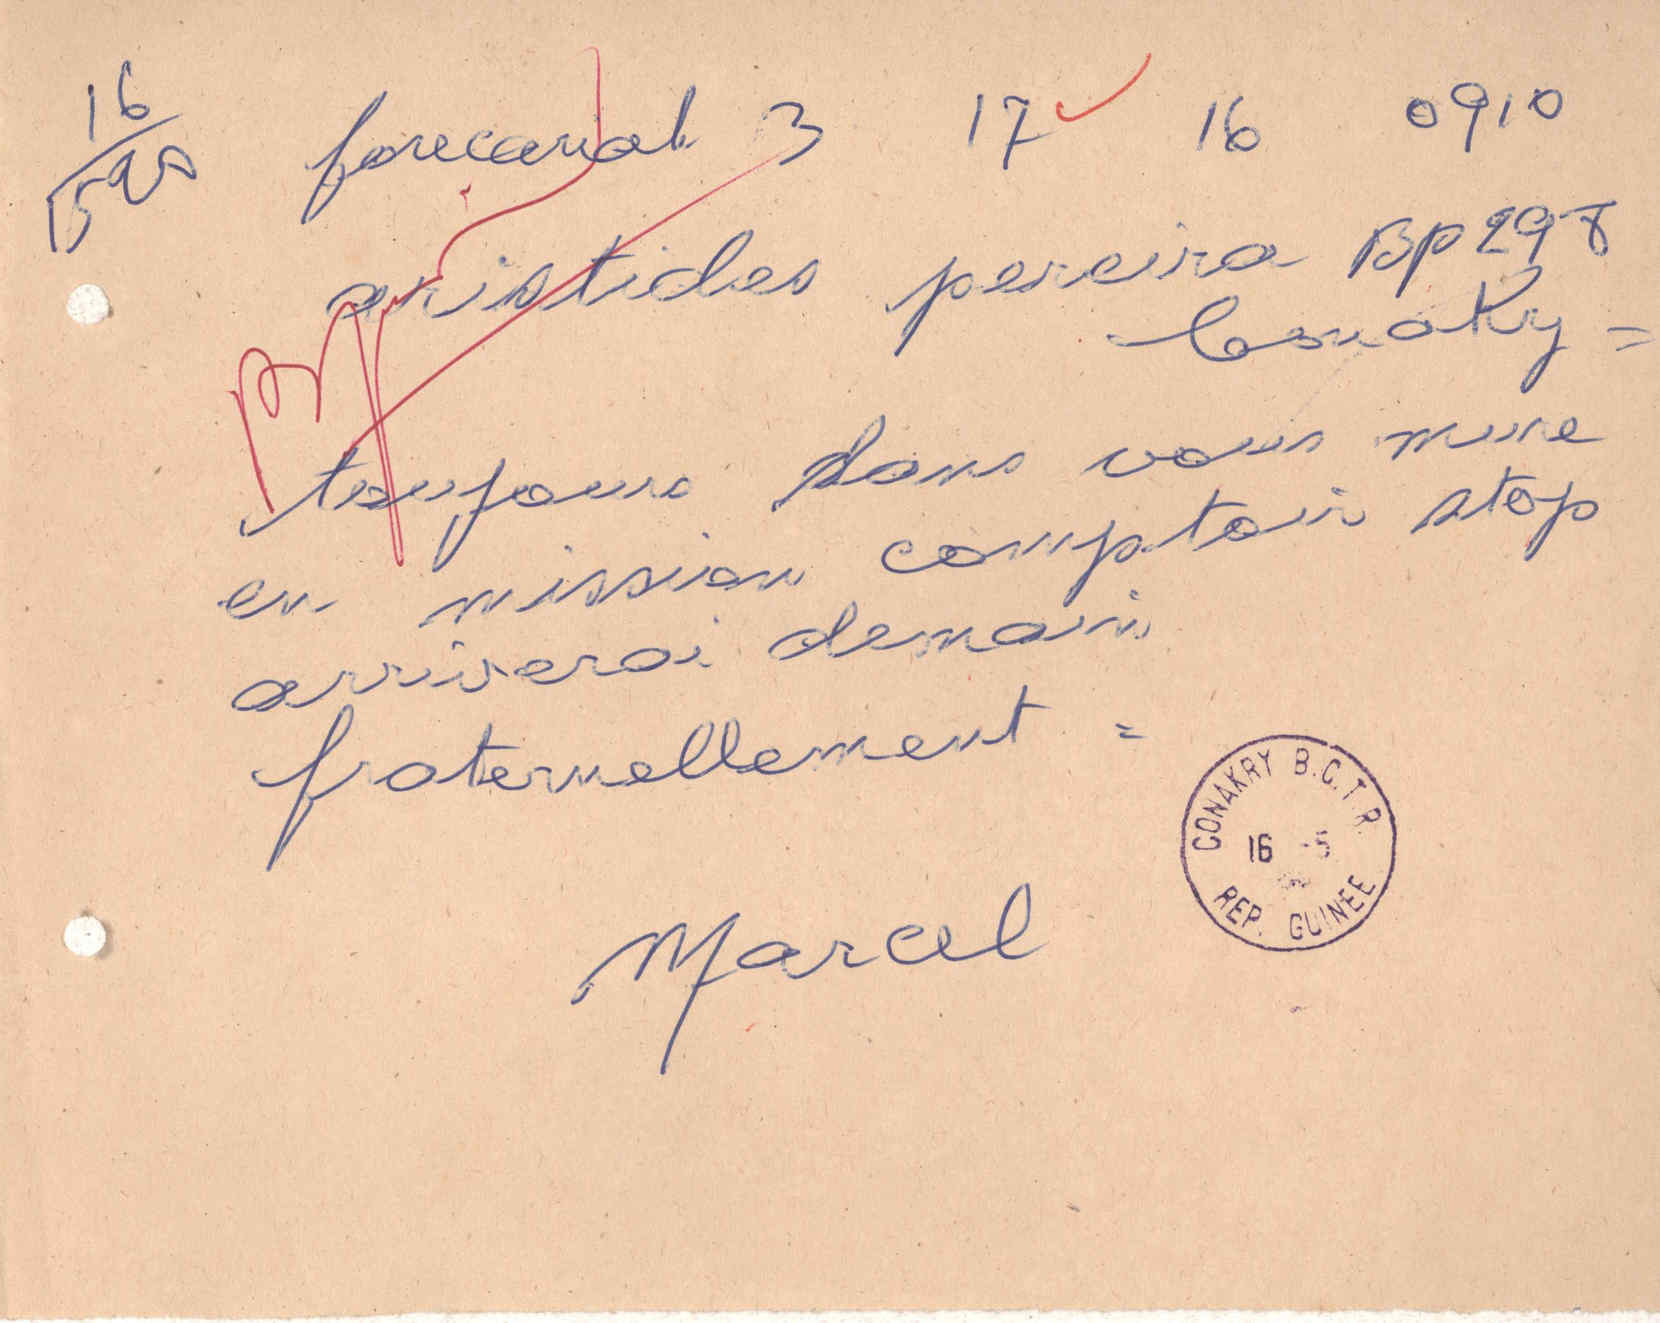 16 forecariah 3 17 16 0910
15
aristides pereira BP 298
Conakry =
toujours sans vous mme
en mission comptoir stop
arriverai demain
fraternellement =
Marcel
CONAKRY B.C.T.R.
16 -5
REP. GUINEE